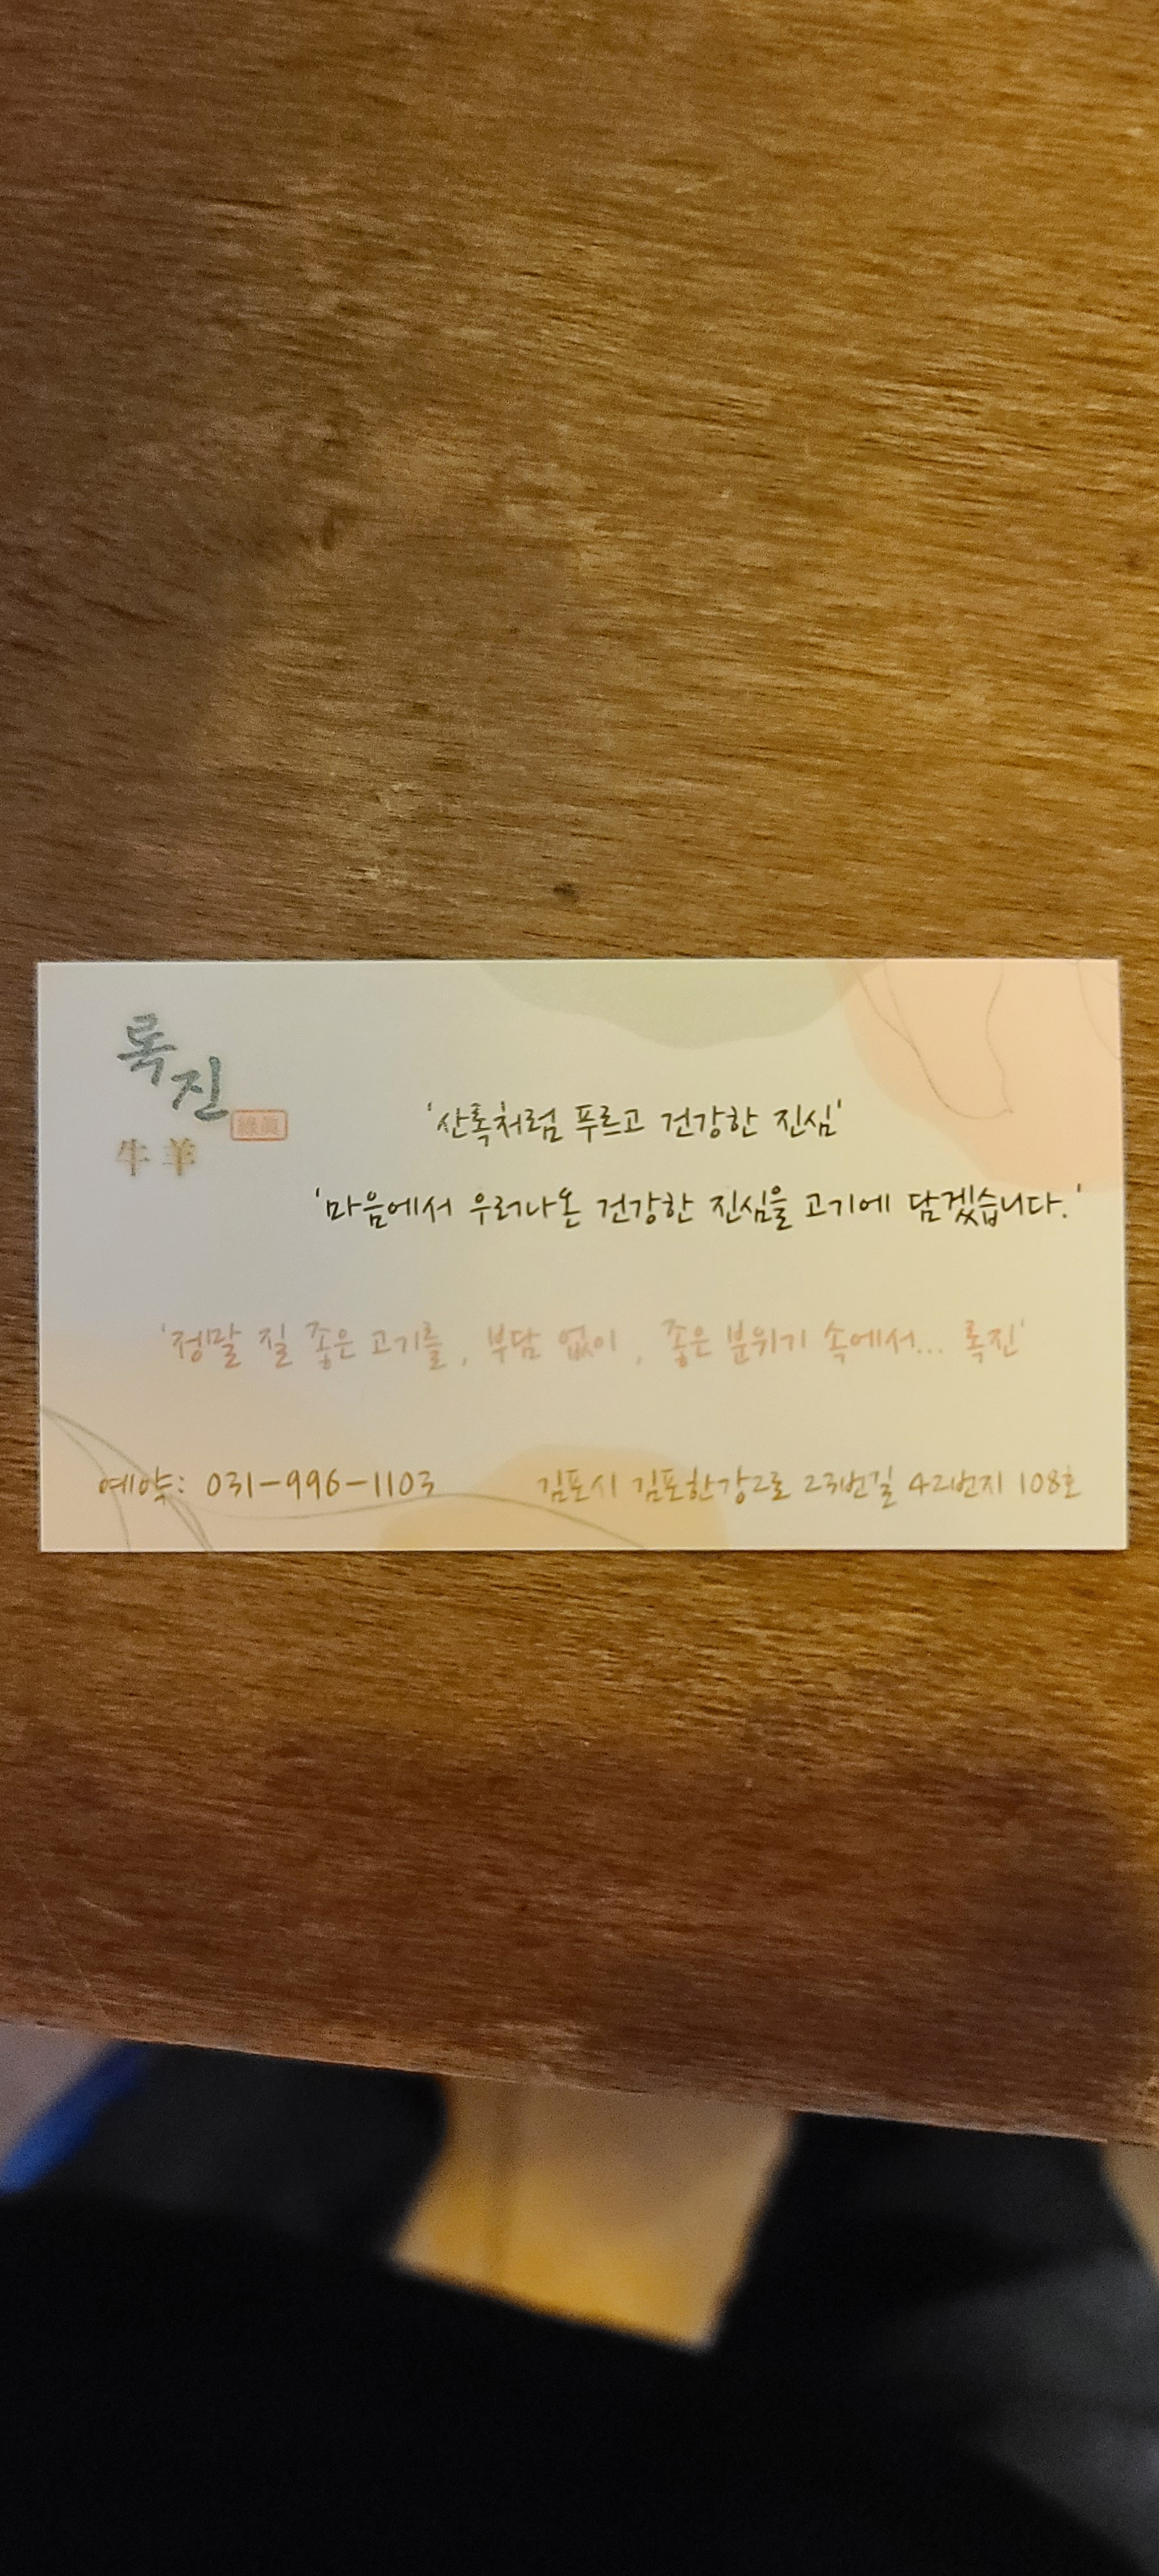 록진
綠眞
牛羊
'산록처럼 푸르고 건강한 진심'
'마음에서 우러나온 건강한 진심을 고기에 담겠습니다.'
'정말 질 좋은 고기를, 부담 없이, 좋은 분위기 속에서... 록진'
예약: 031-996-1103 김포시 김포한강2로 23번길 42번지 108호